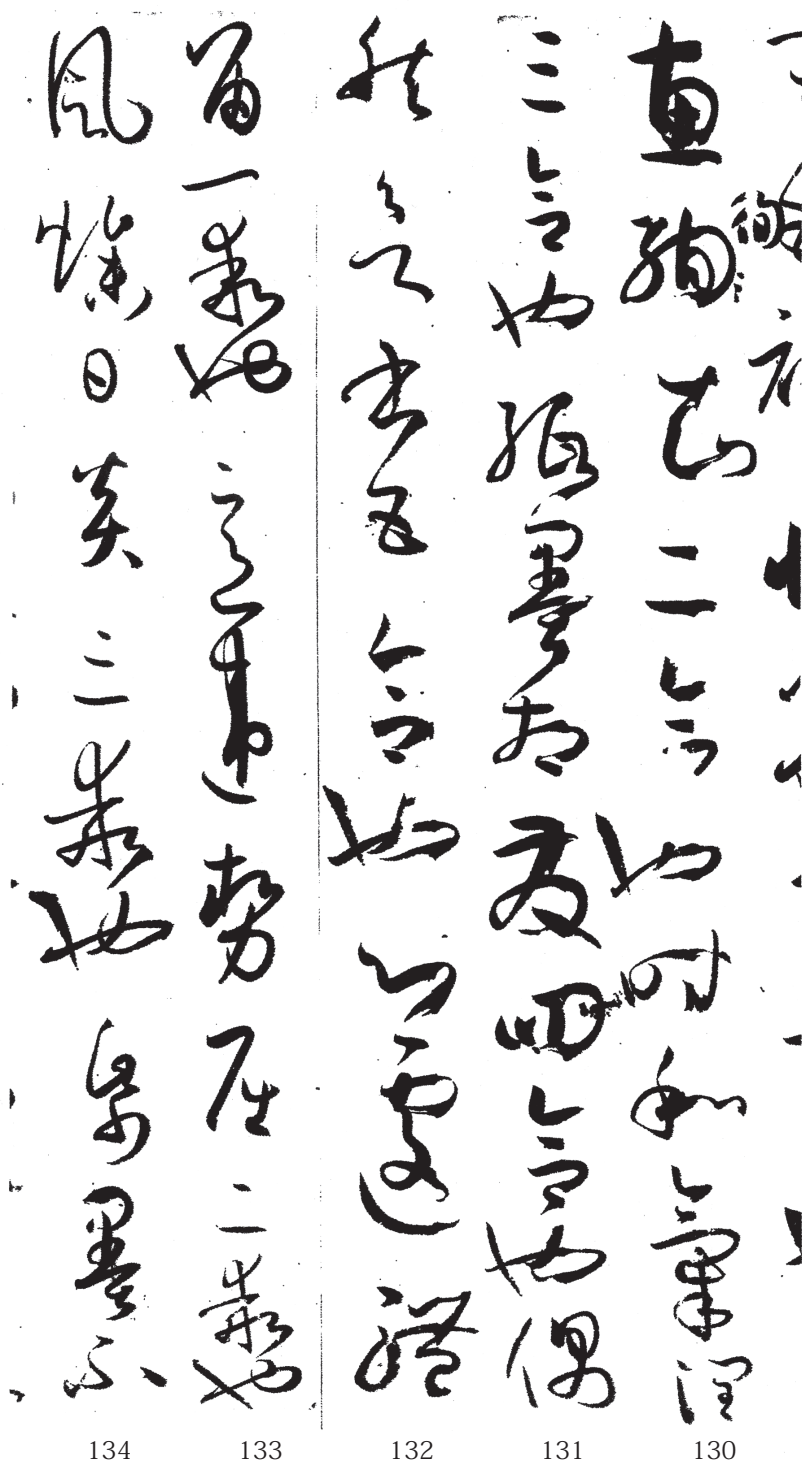 惠徇知二合也時和氣潤
三合也紙墨相發四合也偶
然欲書五合也心遽體
留一乖也意違勢屈二乖也
風燥日炎三乖也帋墨不
134 133 132 131 130